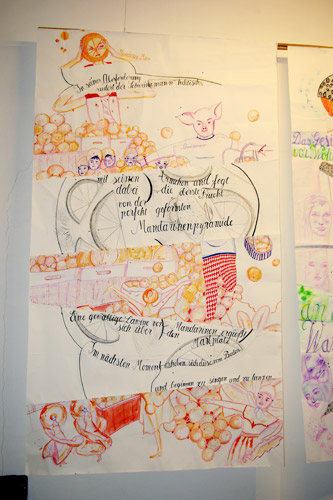 In seiner Überforderung
rudert der Schweinemann hektisch
mit seinen Armchen und fegt
dabei die oberste Frucht
von der
perfekt geformten
Mandarinenpyramide
Eine gewaltige Lawine von Mandarinen ergießt
sich über den Marktplatz
Im nächsten Moment erheben sich diese vom Boden
und beginnen zu singen und zu tanzen
Das Ges